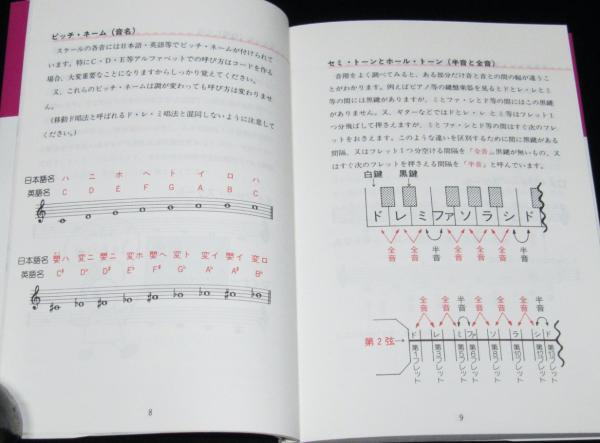 ピッチ・ネーム（音名）
スケールの各音には日本語・英語等でピッチ・ネームが付けられて
います。特にC・D・E等アルファベットでの呼び方はコードを作る
場合、大変重要なことになりますからしっかり覚えてください。
又、これらのピッチ・ネームは調が変わっても呼び方は変わりませ
ん。
（移動ド唱法と呼ばれるド・レ・ミ唱法と混同しないように注意して
ください。）
日本語名 ハ ニ ホ ヘ ト イ ロ ハ
英語名 C D E F G A B C
日本語名 嬰ハ 変ニ 嬰ニ 変ホ 嬰ヘ 変ト 変イ 嬰イ 変ロ
英語名 C♯ D♭ D♯ E♭ F♯ G♭ A♭ A♯ B♭
8
セミ・トーンとホール・トーン（半音と全音）
音階をよく調べてみると、ある部分だけ音と音との間の幅が違うこ
とがわかります。例えばピアノ等の鍵盤楽器を見るとドとレ・レとミ
等の間には黒鍵がありますが、ミとファ・シとド等の間にはこの黒鍵
がありません。又、ギターなどではドとレ・レとミ等はフレット1
つ分飛ばして押さえますが、ミとファ・シとド等の間はすぐ次のフレ
ットをおさえます。このような違いを区別するために間に黒鍵がある
間隔、又はフレット1つ分空ける間隔を「全音」黒鍵が無いもの、又
はすぐ次のフレットを押さえる間隔を「半音」と呼んでいます。
白鍵 黒鍵
ド レ ミ ファ ソ ラ シ ド
全音 全音 半音 全音 全音 全音 半音
全音 全音 半音 全音 全音 全音 半音
第2弦
ド レ ミ ファ ソ ラ シ ド
第1フレット 第3フレット 第5フレット 第6フレット 第8フレット 第10フレット 第12フレット 第13フレット
9